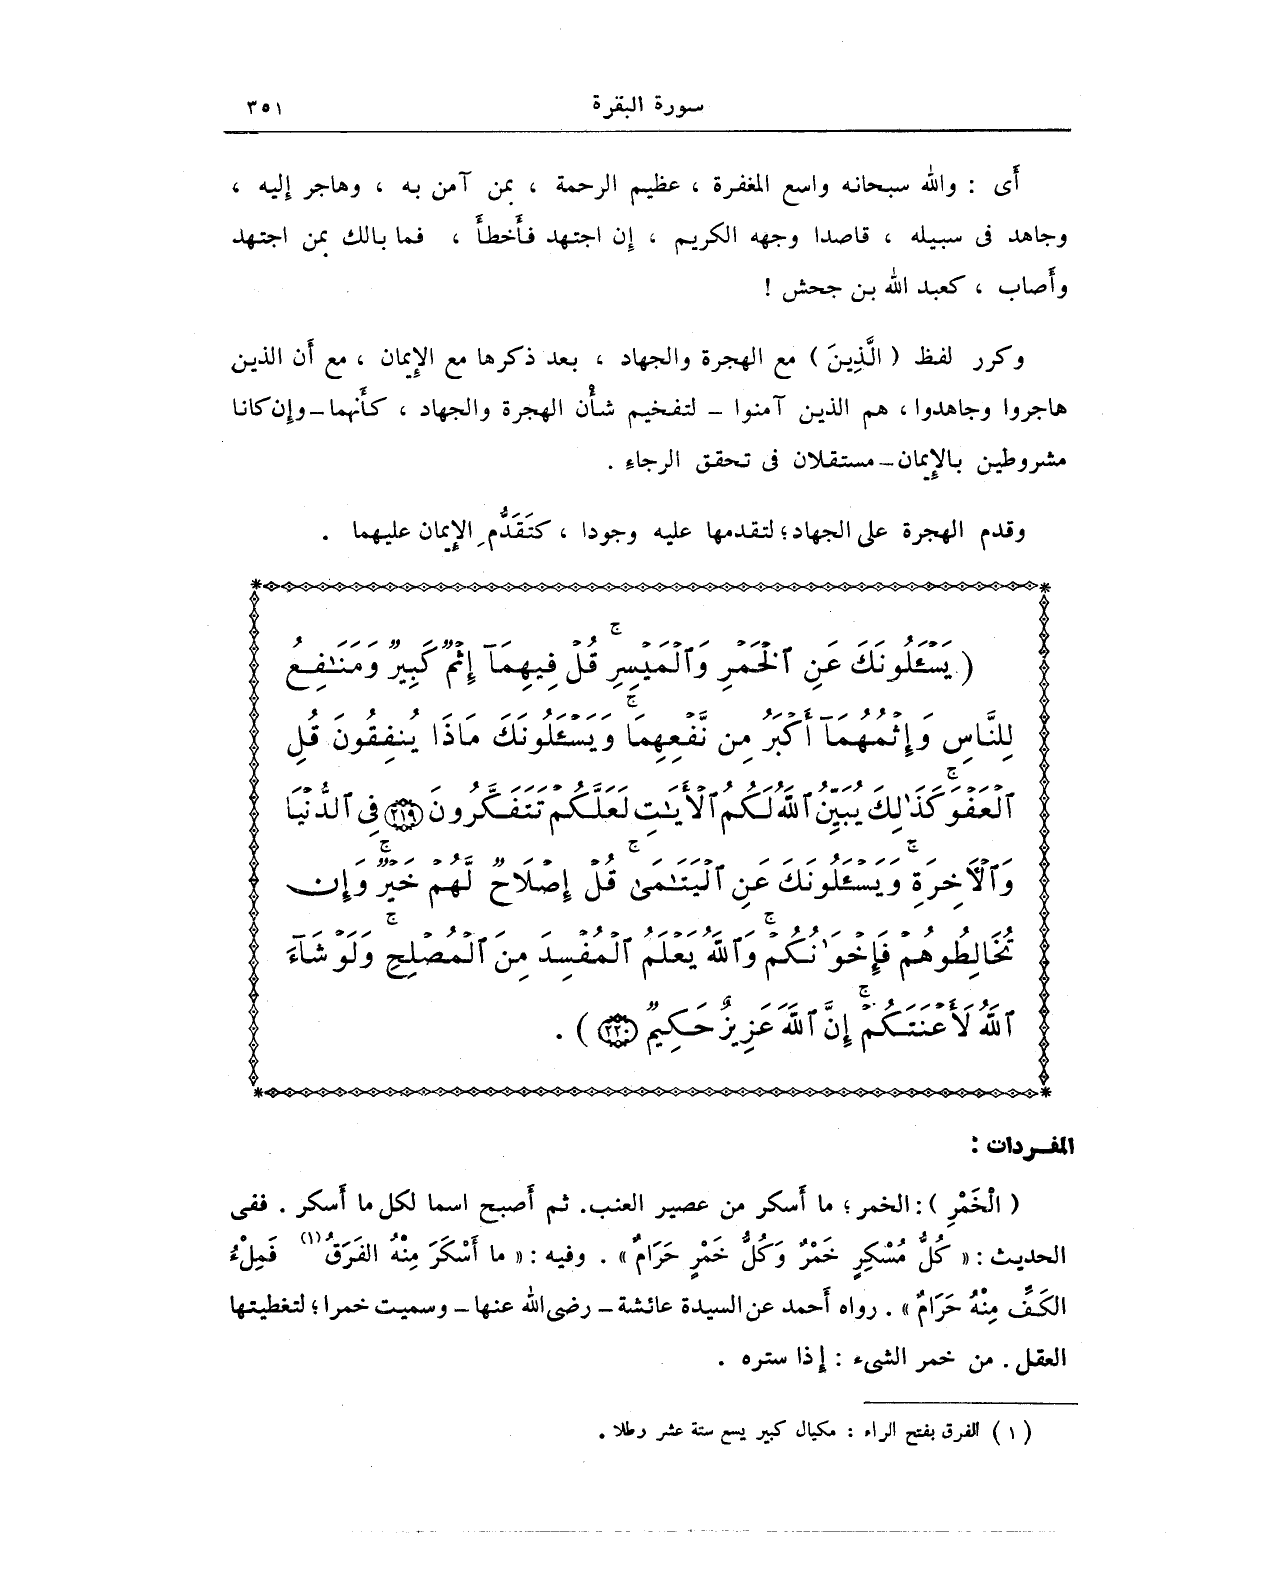 سورة البقرة ٣٥١
أَى : والله سبحانه واسع المغفرة ، عظيم الرحمة ، بمن آمن به ، وهاجر إليه ،
وجاهد فى سبيله ، قاصدا وجهه الكريم ، إن اجتهد فأَخطأَ ، فما بالك بمن اجتهد
وأَصاب ، كعبد الله بن جحش !
وكرر لفظ ( الَّذِينَ ) مع الهجرة والجهاد ، بعد ذكرها مع الإِيمان ، مع أَن الذين
هاجروا وجاهدوا ، هم الذين آمنوا – لتفخيم شأْن الهجرة والجهاد ، كأَنهما – وإن كانا
مشروطين بالإِيمان – مستقلان فى تحقق الرجاءِ .
وقدم الهجرة على الجهاد ؛ لتقدمها عليه وجودا ، كتَقَدُّمِ الإِيمان عليهما .
( يَسْـَٔلُونَكَ عَنِ ٱلْخَمْرِ وَٱلْمَيْسِرِ ۖ قُلْ فِيهِمَآ إِثْمٌ كَبِيرٌ وَمَنَـٰفِعُ
لِلنَّاسِ وَإِثْمُهُمَآ أَكْبَرُ مِن نَّفْعِهِمَا ۗ وَيَسْـَٔلُونَكَ مَاذَا يُنفِقُونَ قُلِ
ٱلْعَفْوَ ۗ كَذَٰلِكَ يُبَيِّنُ ٱللَّهُ لَكُمُ ٱلْأَيَـٰتِ لَعَلَّكُمْ تَتَفَكَّرُونَ ﴿٢١٩﴾ فِى ٱلدُّنْيَا
وَٱلْأَخِرَةِ ۗ وَيَسْـَٔلُونَكَ عَنِ ٱلْيَتَـٰمَىٰ ۖ قُلْ إِصْلَاحٌ لَّهُمْ خَيْرٌ ۖ وَإِن
تُخَالِطُوهُمْ فَإِخْوَٰنُكُمْ ۚ وَٱللَّهُ يَعْلَمُ ٱلْمُفْسِدَ مِنَ ٱلْمُصْلِحِ ۚ وَلَوْ شَآءَ
ٱللَّهُ لَأَعْنَتَكُمْ ۚ إِنَّ ٱللَّهَ عَزِيزٌ حَكِيمٌ ﴿٢٢٠﴾ ) .
المفردات :
( الْخَمْرِ ) : الخمر ؛ ما أَسكر من عصير العنب . ثم أَصبح اسما لكل ما أَسكر . ففى
الحديث : « كُلُّ مُسْكِرٍ خَمْرٌ وَكُلُّ خَمْرٍ حَرَامٌ » . وفيه : « ما أَسْكَرَ مِنْهُ الفَرَقُ (١) فَمِلْءُ
الكَفِّ مِنْهُ حَرَامٌ » . رواه أَحمد عن السيدة عائشة – رضى الله عنها – وسميت خمرا ؛ لتغطيتها
العقل . من خمر الشىء : إذا ستره .
( ١ ) الفرق بفتح الراء : مكيال كبير يسع ستة عشر رطلا .